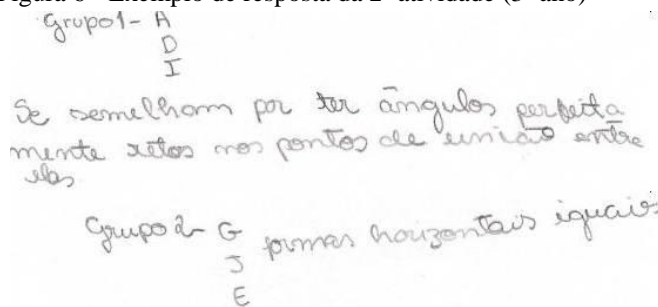 Figura 6 - Exemplo de resposta da 2ª atividade (5º ano)
Grupo 1- A
D
I
Se semelham por ter ângulos perfeita
mente retos nos pontos de união entre
elas
Grupo 2- G formas horizontais iguais
J
E